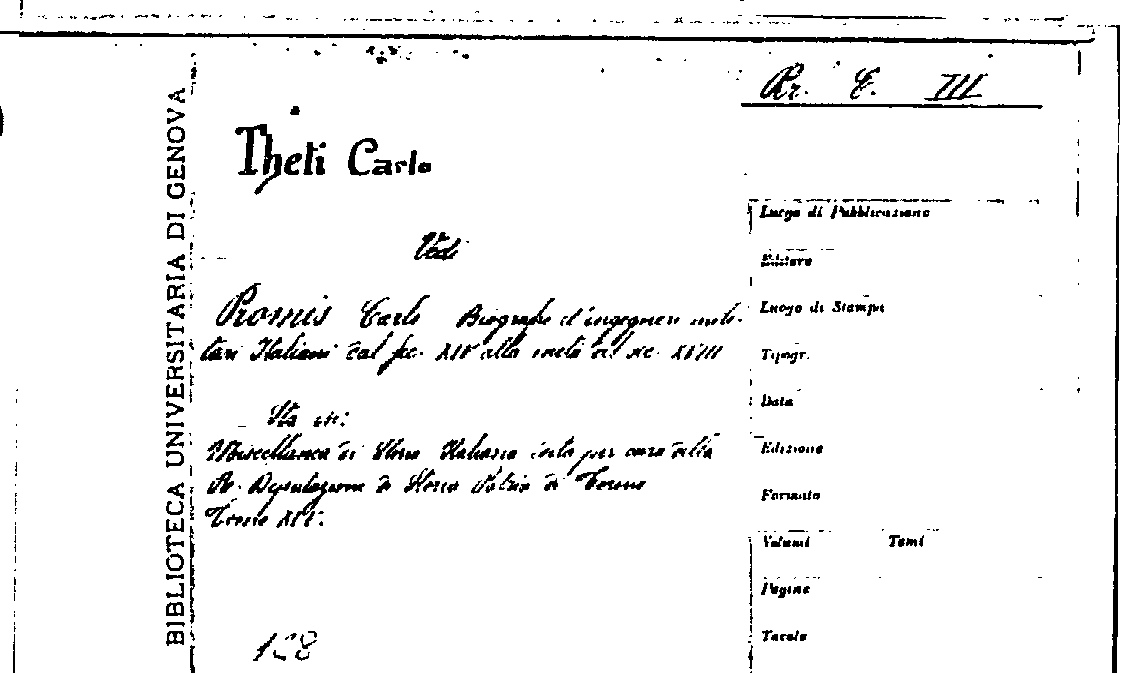 BIBLIOTECA UNIVERSITARIA DI GENOVA
Rr. C. III
Theti Carlo
Vedi
Promis Carlo Biografie d'ingegneri mili-
tari Italiani dal sec. XIV alla metà del sec. XVIII
Sta in:
Miscellanea di Storia Italiana edita per cura della
R. Deputazione di Storia Patria di Torino
Tomo XIV.
128
Luogo di Pubblicazione
Editore
Luogo di Stampa
Tipogr.
Data
Edizione
Formato
Volumi Tomi
Pagine
Tavole